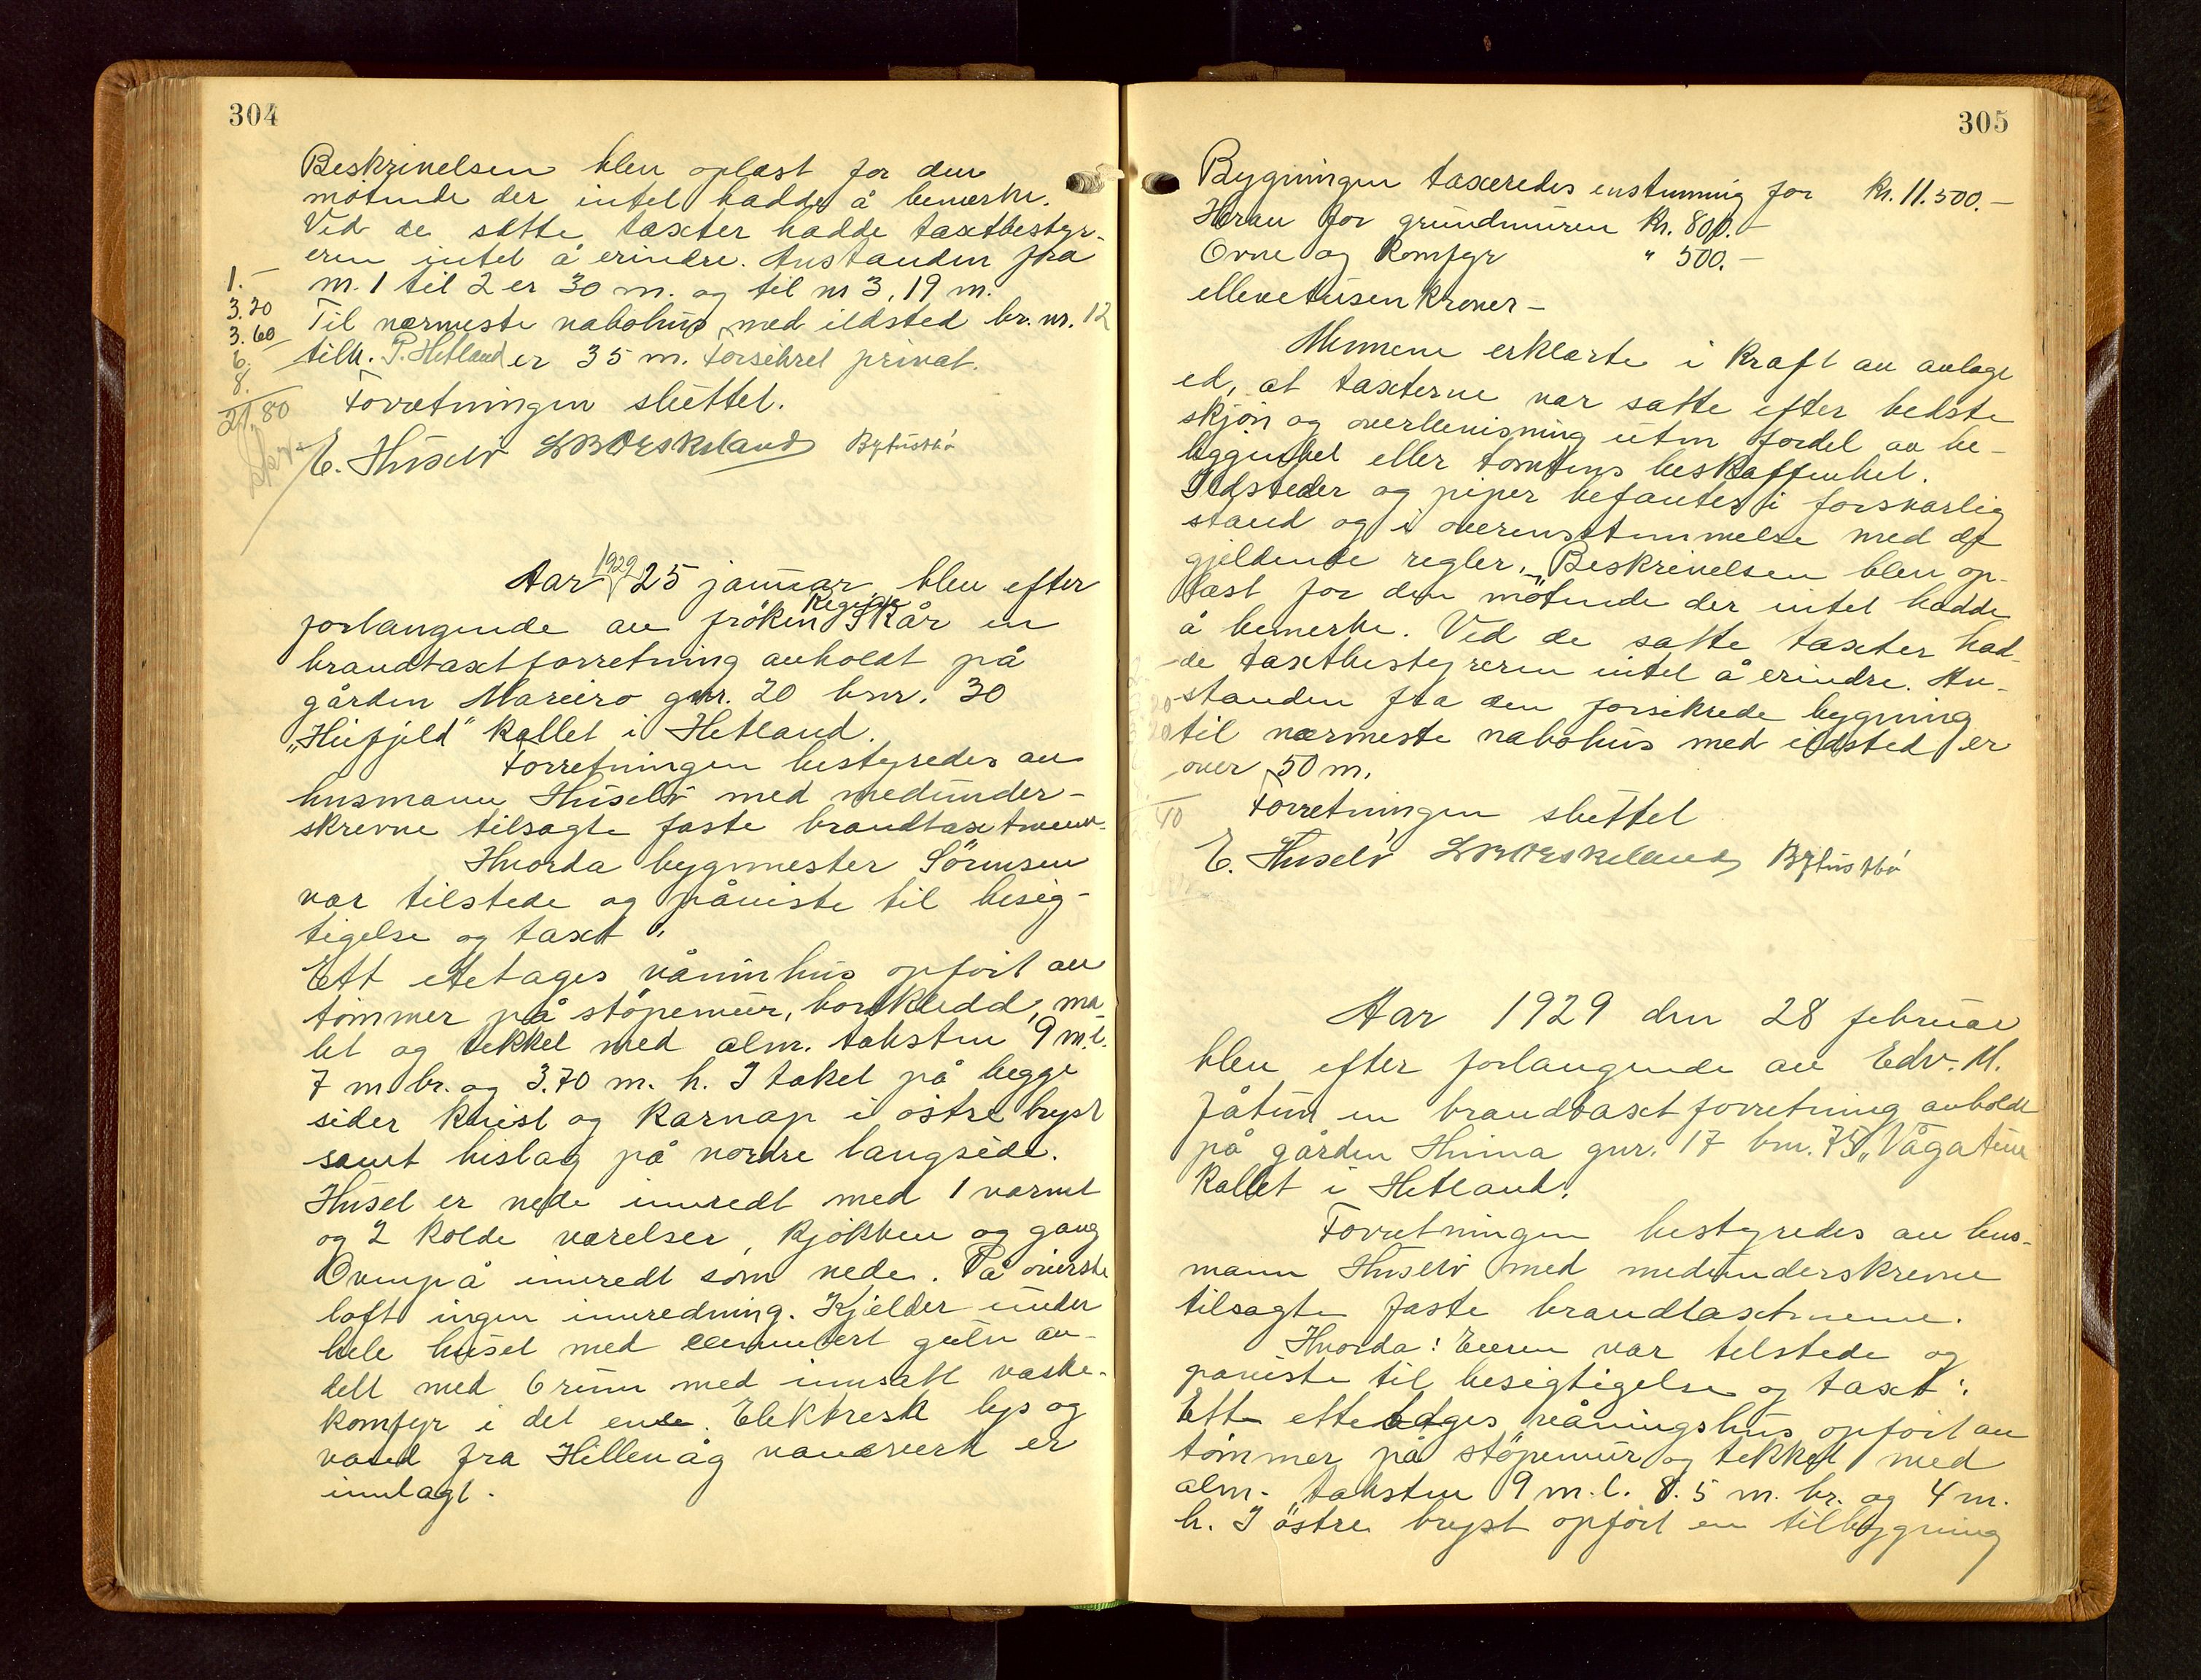 304
Beskrivelsen blev oplæst for den
møtende der intet hadde å bemerke.
Ved de satte taxter hadde taxtbestyr-
eren intet å erindre. Avstanden fra
nr. 1 til 2 er 30 m. og til nr 3, 19 m.
Til nærmeste nabohus med ildsted br. nr. 12
tilh. P. Hetland er 35 m. Forsikret privat.
Forretningen sluttet.
1.-
3.20
3.60
6.
8.
21,80
E. Huselv LBOeskeland
Aar 1929 25 januar blev efter
forlangende av frøken Regine Skår en
brandtaxtforretning avholdt på
gården Mareiro gnr. 20 bnr. 30
„Hufjeld" kallet i Hetland.
Forretningen bestyredes av
husmann Huselv med medunder-
skrevne tilsagte faste brandtaxtmenn.
Hvorda bygmester Sörensen
var tilstede og påviste til besig-
tigelse og taxt:
Ett etetages våninhus opført av
tømmer på støpemur, bordkledd, ma-
let og tekket med alm. taksten 9 m. l.
7 m br. og 3.70 m. h. I taket på begge
sider kvist og karnap i østre bryst
samt bislag på nordre langside.
Huset er nede innredt med 1 varmt
og 2 kolde værelser, kjøkken og gang
Ovenpå innredt som nede. På øverste
loft ingen innredning. Kjelder under
hele huset med cementert gulv av-
delt med 6 rum med innsatt vaske-
komfyr i det ene. Elektrisk lys og
vand fra Hillevåg vandverk er
innlagt.
305
Bygningen taxeredes enstemmig for kr. 11.500.-
Herav for grundmuren kr. 800.-
Ovne og komfyr " 500.-
ellevetusen kroner-
Mennene erklærte i kraft av avlagt
ed, at taxterne var satte efter bedste
skjøn og overbevisning uten fordel av be-
liggenhet eller tomtens beskaffenhet.
Ildsteder og piper befantes i forsvarlig
stand og i overensstemmelse med de
gjeldende regler. Beskrivelsen blev op-
læst for den møtende der intet hadde
å bemerke. Ved de satte taxter had-
de taxtbestyreren intet å erindre. Av-
standen fra den forsikrede bygning
til nærmeste nabohus med ildsted er
over 50 m.
Forretningen sluttet
E. Huselv LBOeskeland
Aar 1929 den 28 februar
blev efter forlangende av Edv. M.
Jåtun en brandtaxtforretning avholdt
på gården Hinna gnr. 17 bnr. 75 „Vågatun
kallet i Hetland.
Forretningen bestyredes av hus-
mann Huselv med medunderskrevne
tilsagte faste brandtaxtmenn.
Hvorda: Eieren var tilstede og
paviste til besigtigelse og taxt:
Ett ettetages våningshus opført av
tømmer på støpemur og tekket med
alm. taksten 9 m. l. 8.5 m. br. og 4 m.
h. I østre bryst opført en tilbygning